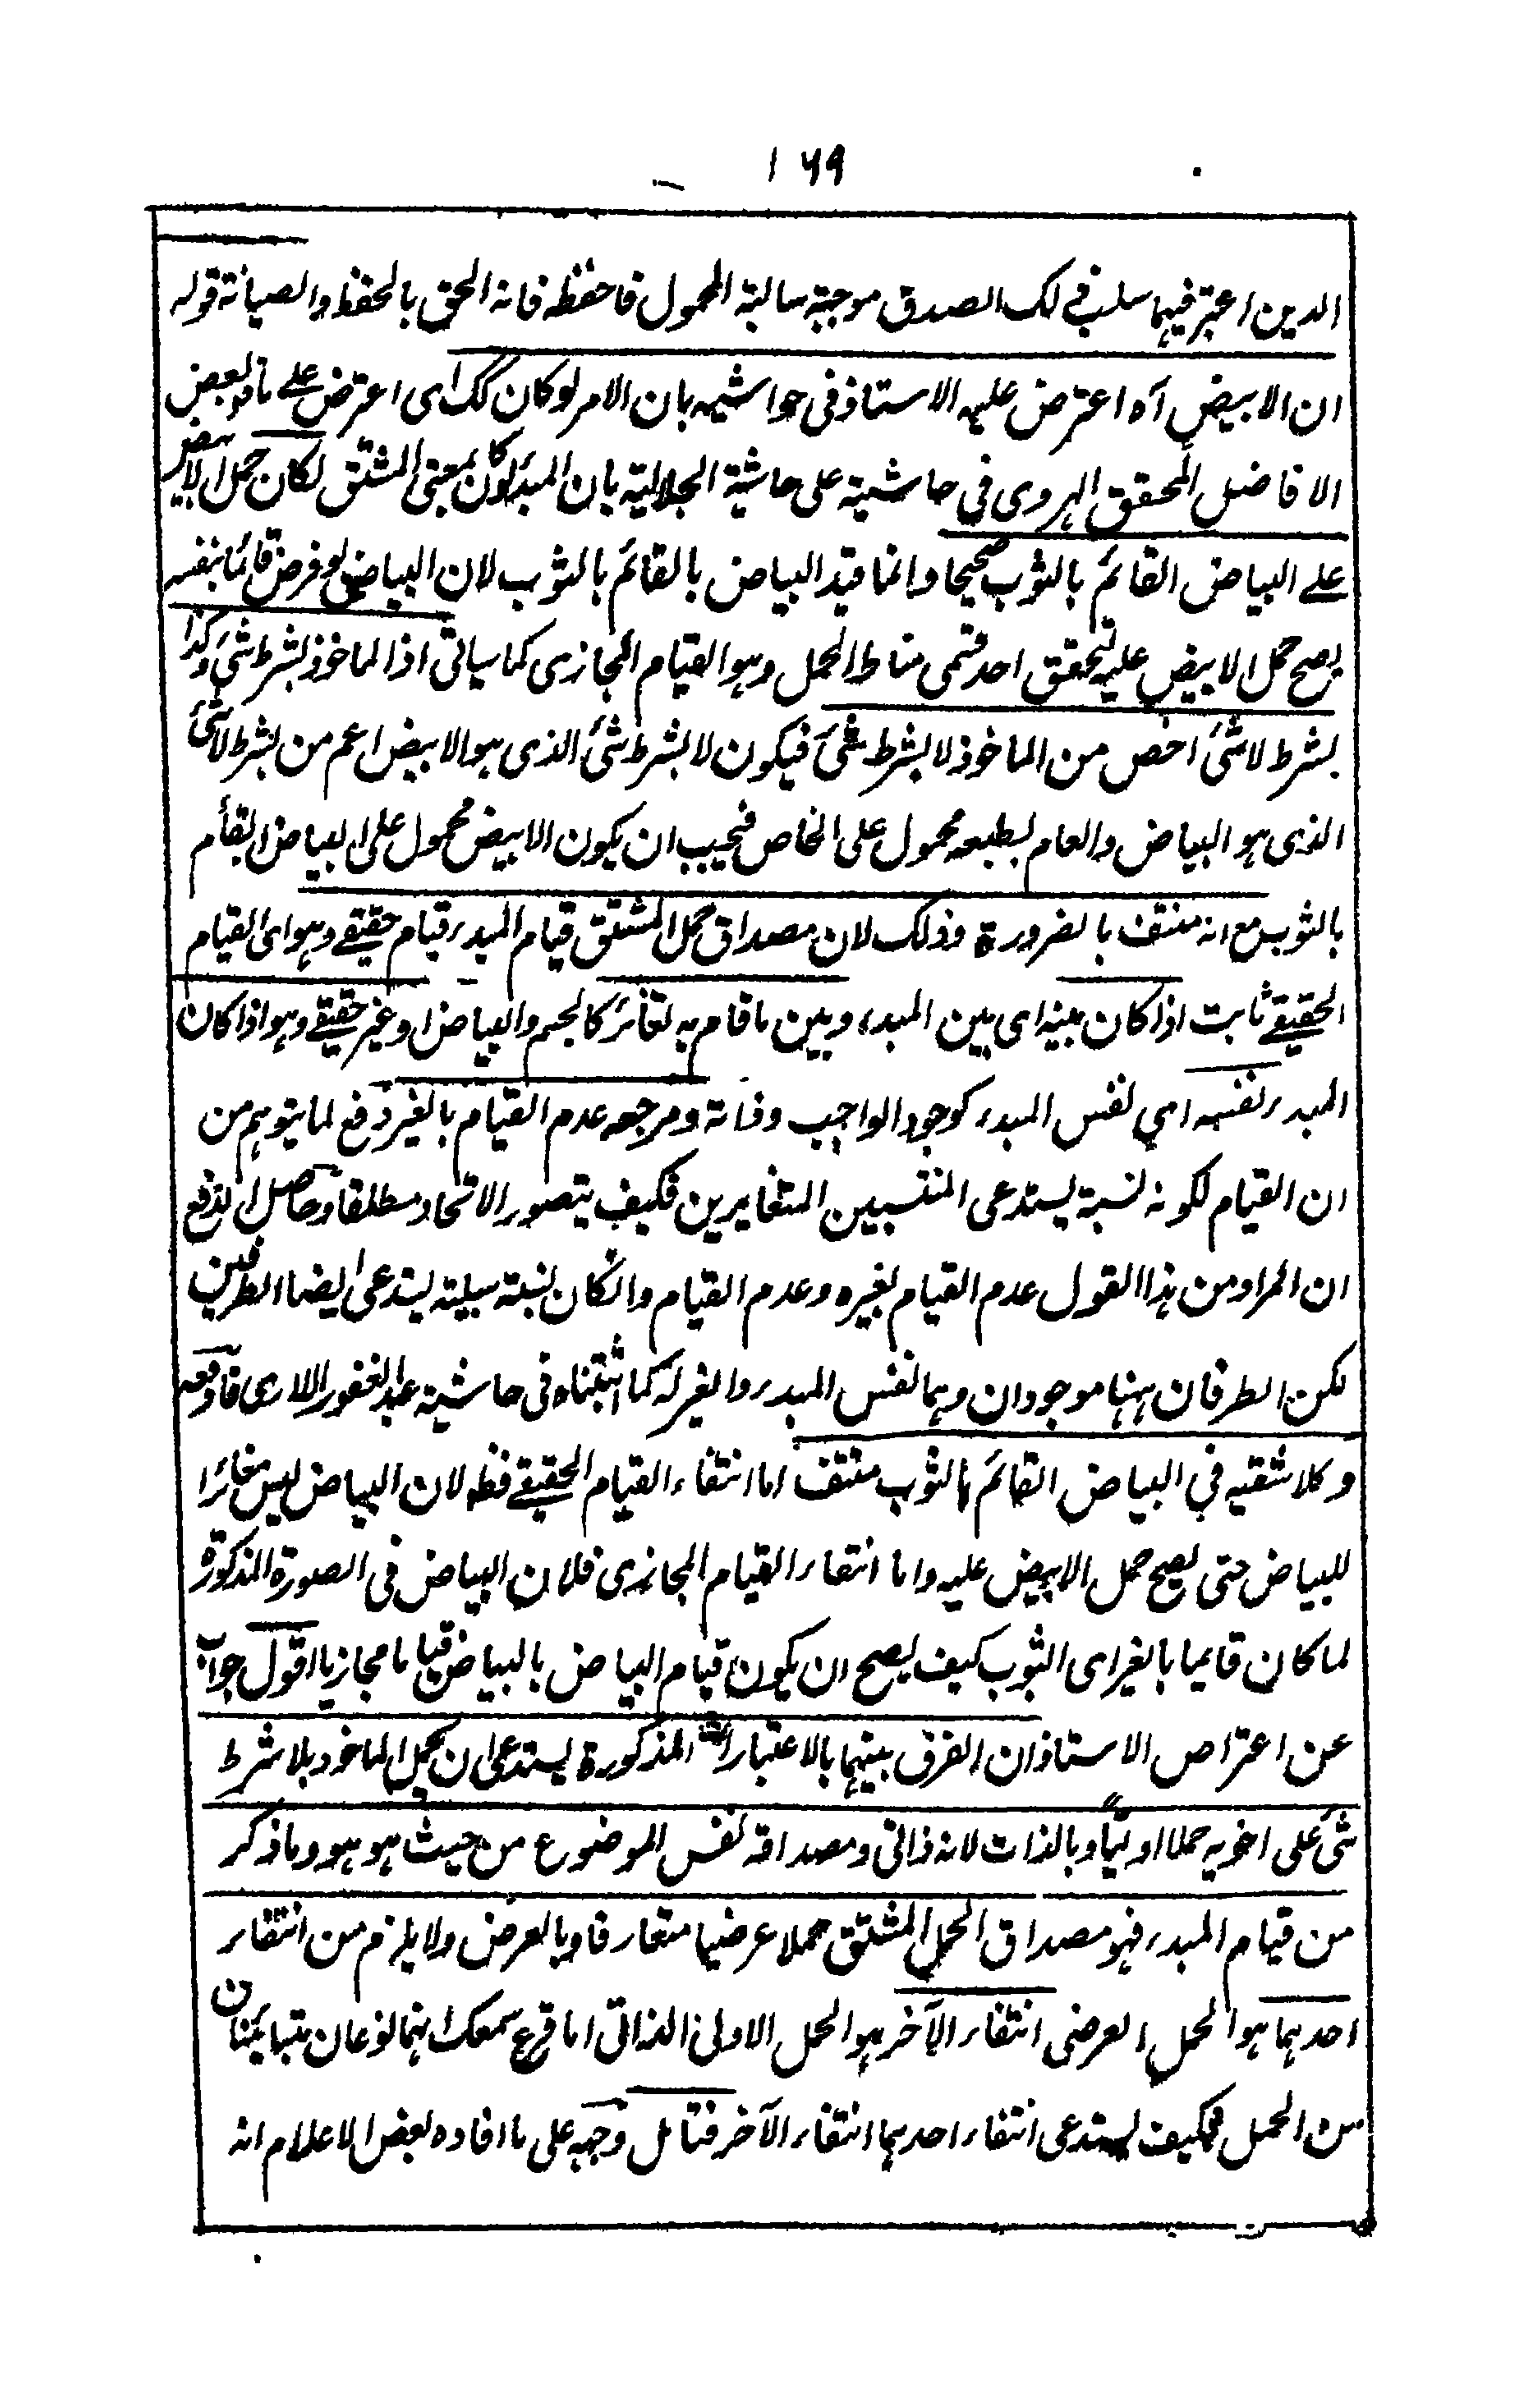 ۱۶۹
الدين اعتبر فيهما سلب فے لک الصدق موجبة سالبة المحمول فاحفظه فانه الحق بالحفظ والصيانة قوله
ان الابيض آه اعترض عليه الاستاذ فى حواشيه بان الامر لو كان كك اى اعترض علے ما بعض
الافاضل المحقق الهروى في حاشيته على حاشية الجلالية بان المبدأ لو كان بمعنى المشتق لكان حمل الابيض
علے البياض القائم بالثوب صحيحا وانما قيد البياض بالقائم بالثوب لان البياض لو فرض قائما بنفسه
يصح حمل الابيض عليه لتحقق احد قسمى مناط الحمل وهو القيام المجازى كما سياتى اذ الماخوذ بشرط شئ وكذا
بشرط لا شئ اخص من الماخوذ لا بشرط شئ فيكون لا بشرط شئ الذى هو الابيض اعم من بشرط لا شئ
الذى هو البياض والعام بطبعه محمول على الخاص فيجب ان يكون الابيض محمول على البياض القائم
بالثوب مع انه منتف بالضرورة وذلك لان مصداق حمل المشتق قيام المبدء قيام حقيقے وهو اى القيام
الحقيقے ثابت اذا كان بينه اى بين المبدء وبين ما قام به تغائر كالجسم والبياض او غير حقيقے وهو اذا كان
المبدء نفسه اي نفس المبدء كوجود الواجب وذاته ومرجعه عدم القيام بالغير دفع لما يتوهم من
ان القيام لكونه نسبة يستدعى المنتسبين المتغايرين فكيف يتصور الاتحاد مطلقا وحاصل الدفع
ان المراد من هذا القول عدم القيام لغيره وعدم القيام وانكان نسبة سلبية يستدعى ايضا الطرفين
لكن الطرفان ههنا موجودان وهما نفس المبدء والغير له كما اثبتناه فى حاشية عبد الغفور اللارى
وكلا شقيه في البياض القائم بالثوب منتف اما انتفاء القيام الحقيقے فظ لان البياض ليس مغائرا
للبياض حتى يصح حمل الابيض عليه واما انتفاء القيام المجازى فلان البياض فى الصورة المذكورة
لما كان قايما بالغير اى الثوب كيف يصح ان يكون قيام البياض بالبياض قياما مجازيا اقول جواب
عن اعتراض الاستاذ ان الفرق بينهما بالاعتبارات المذكورة يستدعى ان يحمل الماخوذ بلا شرط
شئ على اخويه حملا اوليا وبالذات لانه ذاتى ومصداقه نفس الموضوع من حيث هو هو وما ذكر
من قيام المبدء فهو مصداق الحمل المشتق حملا عرضيا متعارفا وبالعرض ولا يلزم من انتفاء
احدهما هو الحمل العرضى انتفاء الآخر هو الحمل الاولى الذاتى اما قرع سمعك انهما نوعان متباينان
من الحمل فكيف يستدعى انتفاء احدهما انتفاء الآخر فتامل وجه على ما افاده بعض الاعلام انه